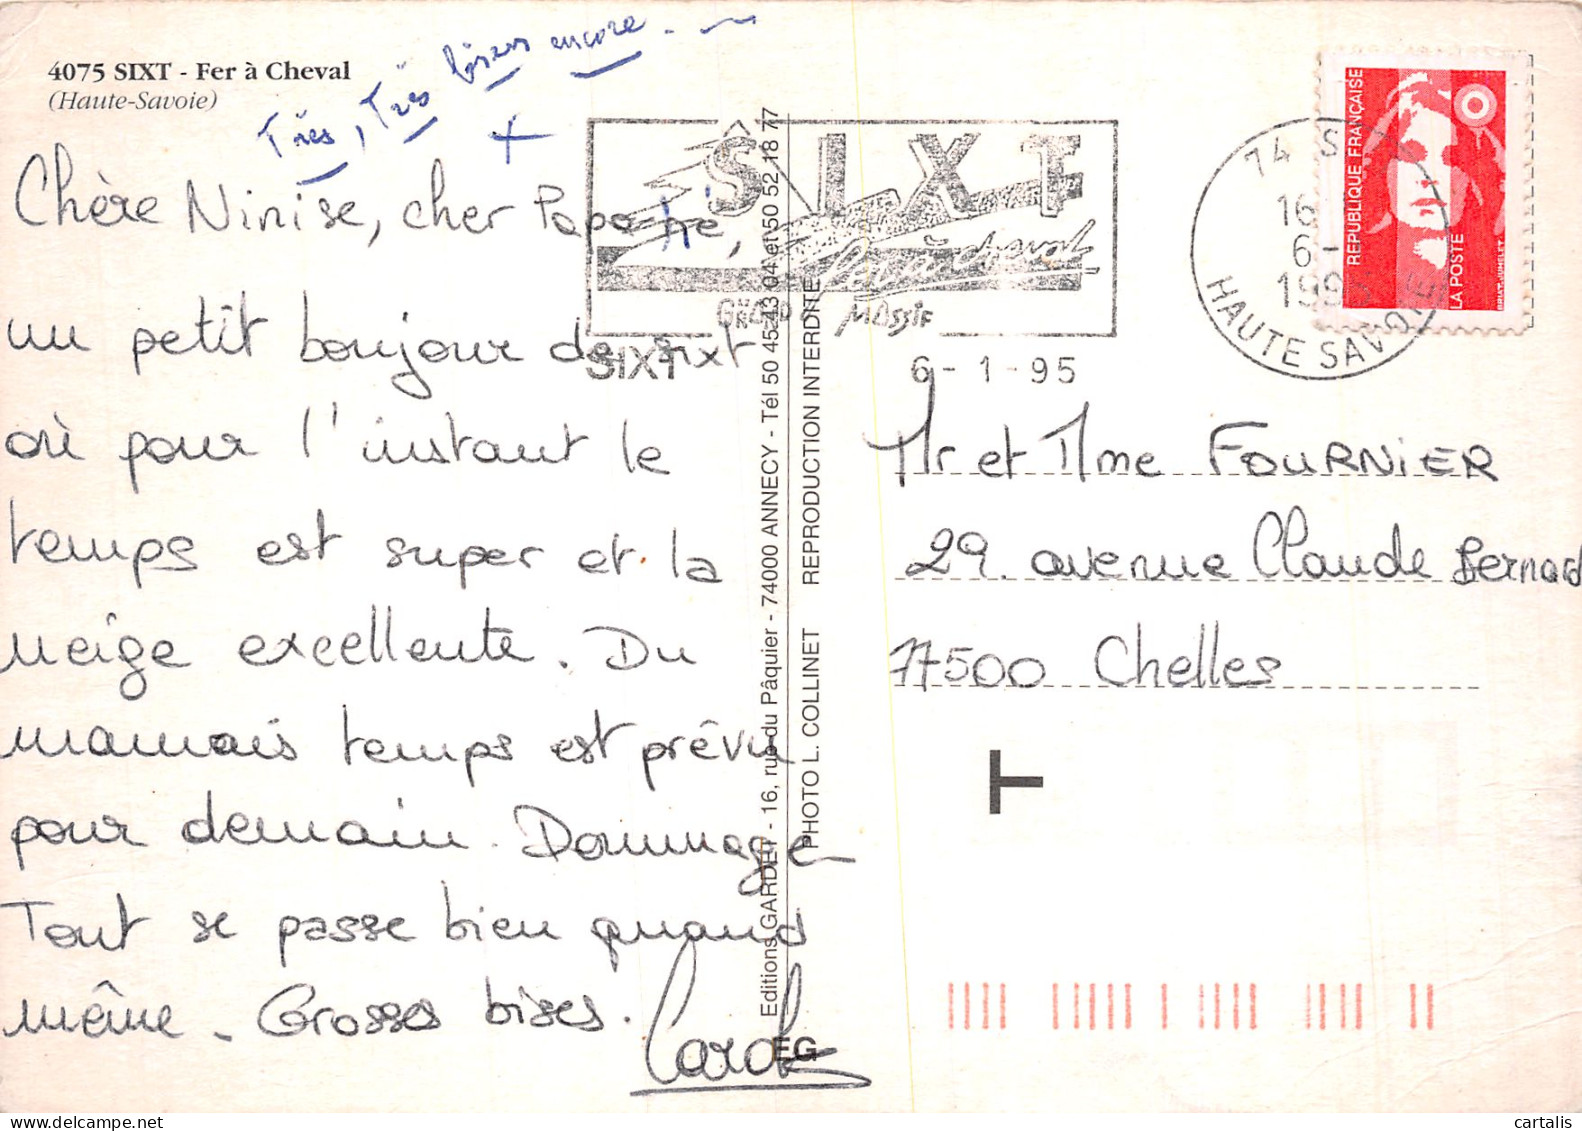 4075 SIXT - Fer à Cheval
(Haute-Savoie)
Très, Très bises encore.
Chère Ninise, cher
un petit bonjour de sixt
où pour l'instant le
temps est super et la
neige excellente. Du
mauvais temps est prévu
pour demain. Dommage
Tout se passe bien quand
même. Grosses bises.
Carole
Editions GARDET - 16, rue du Pâquier - 74000 ANNECY - Tél 50 45 43 04 et 50 52 18 77
PHOTO L. COLLINET REPRODUCTION INTERDITE
EG
SIXT
GRAND MASSIF
SIXT
6-1-95
74 S
16
6-
199
HAUTE SAVOIE
REPUBLIQUE FRANÇAISE
LA POSTE
BRIAT-JUMELET
Mr et Mme FOURNIER
29. avenue Claude Bernard
77500 Chelles
T
cartalis